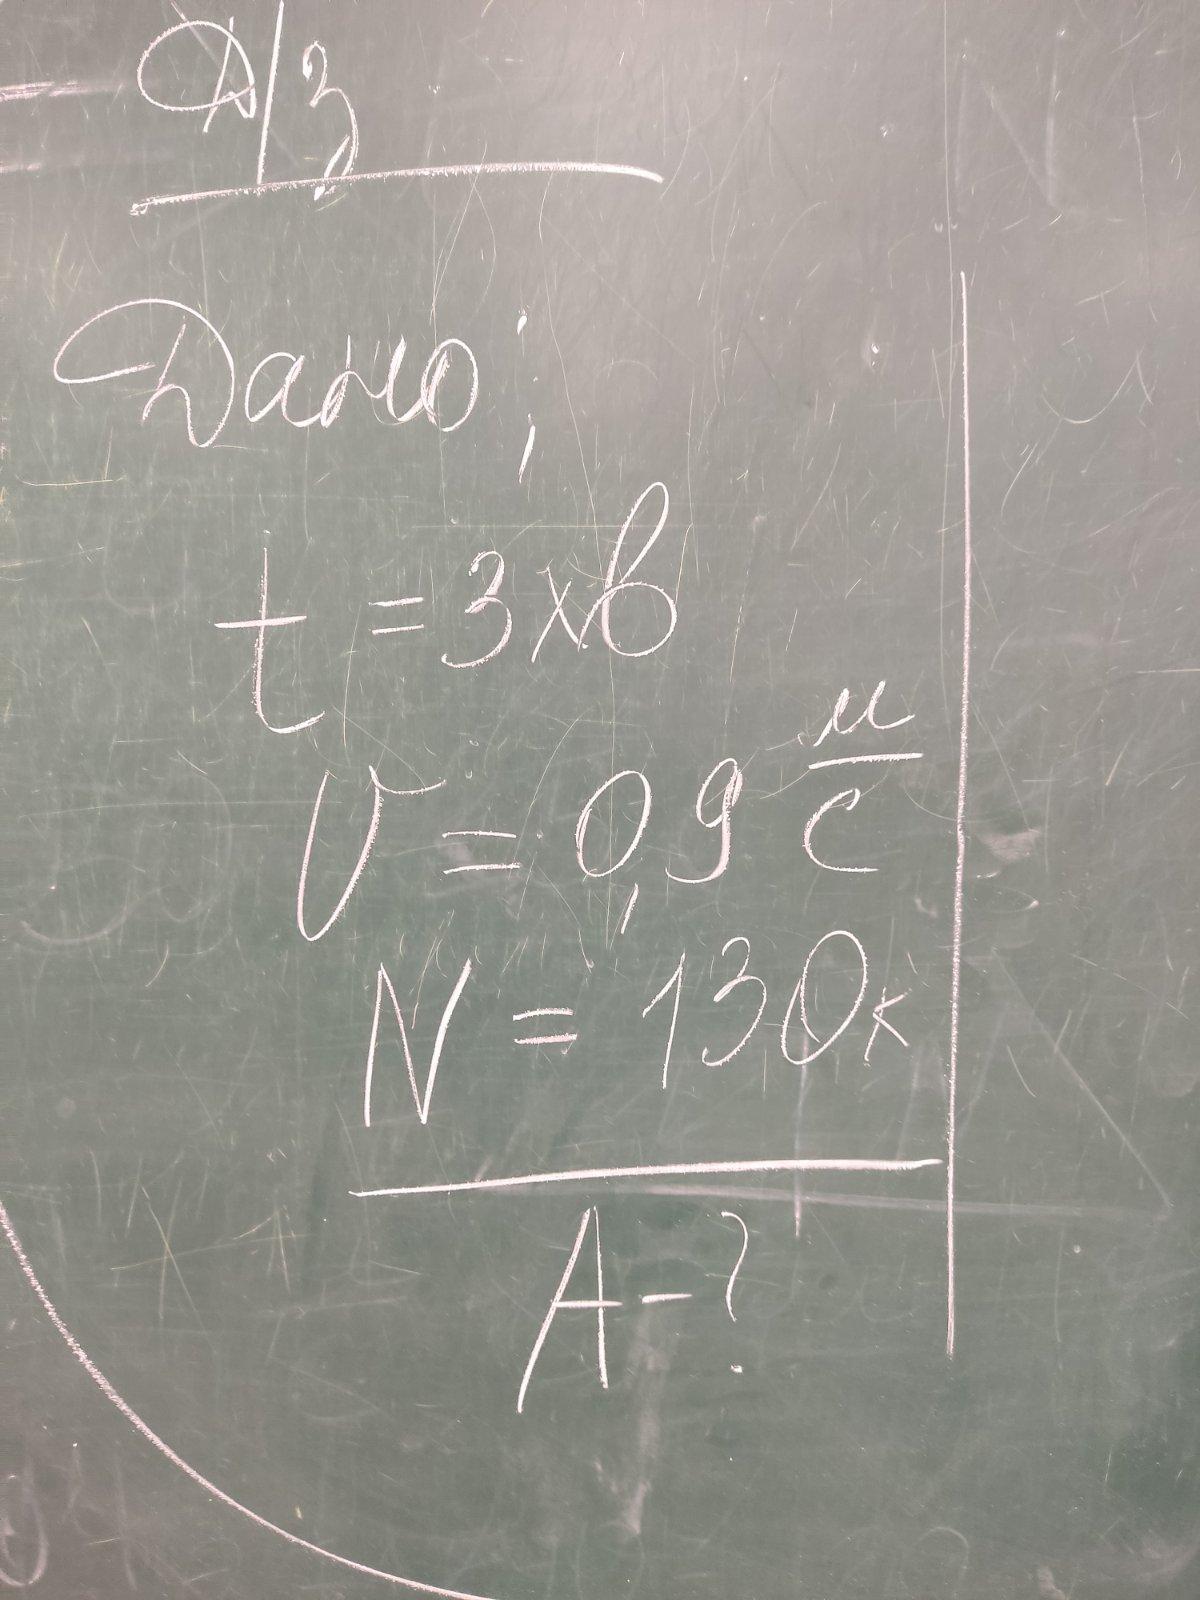 Д/З
Дано:
t = 3 хв
υ = 0,9 м/с
N = 130к
A - ?